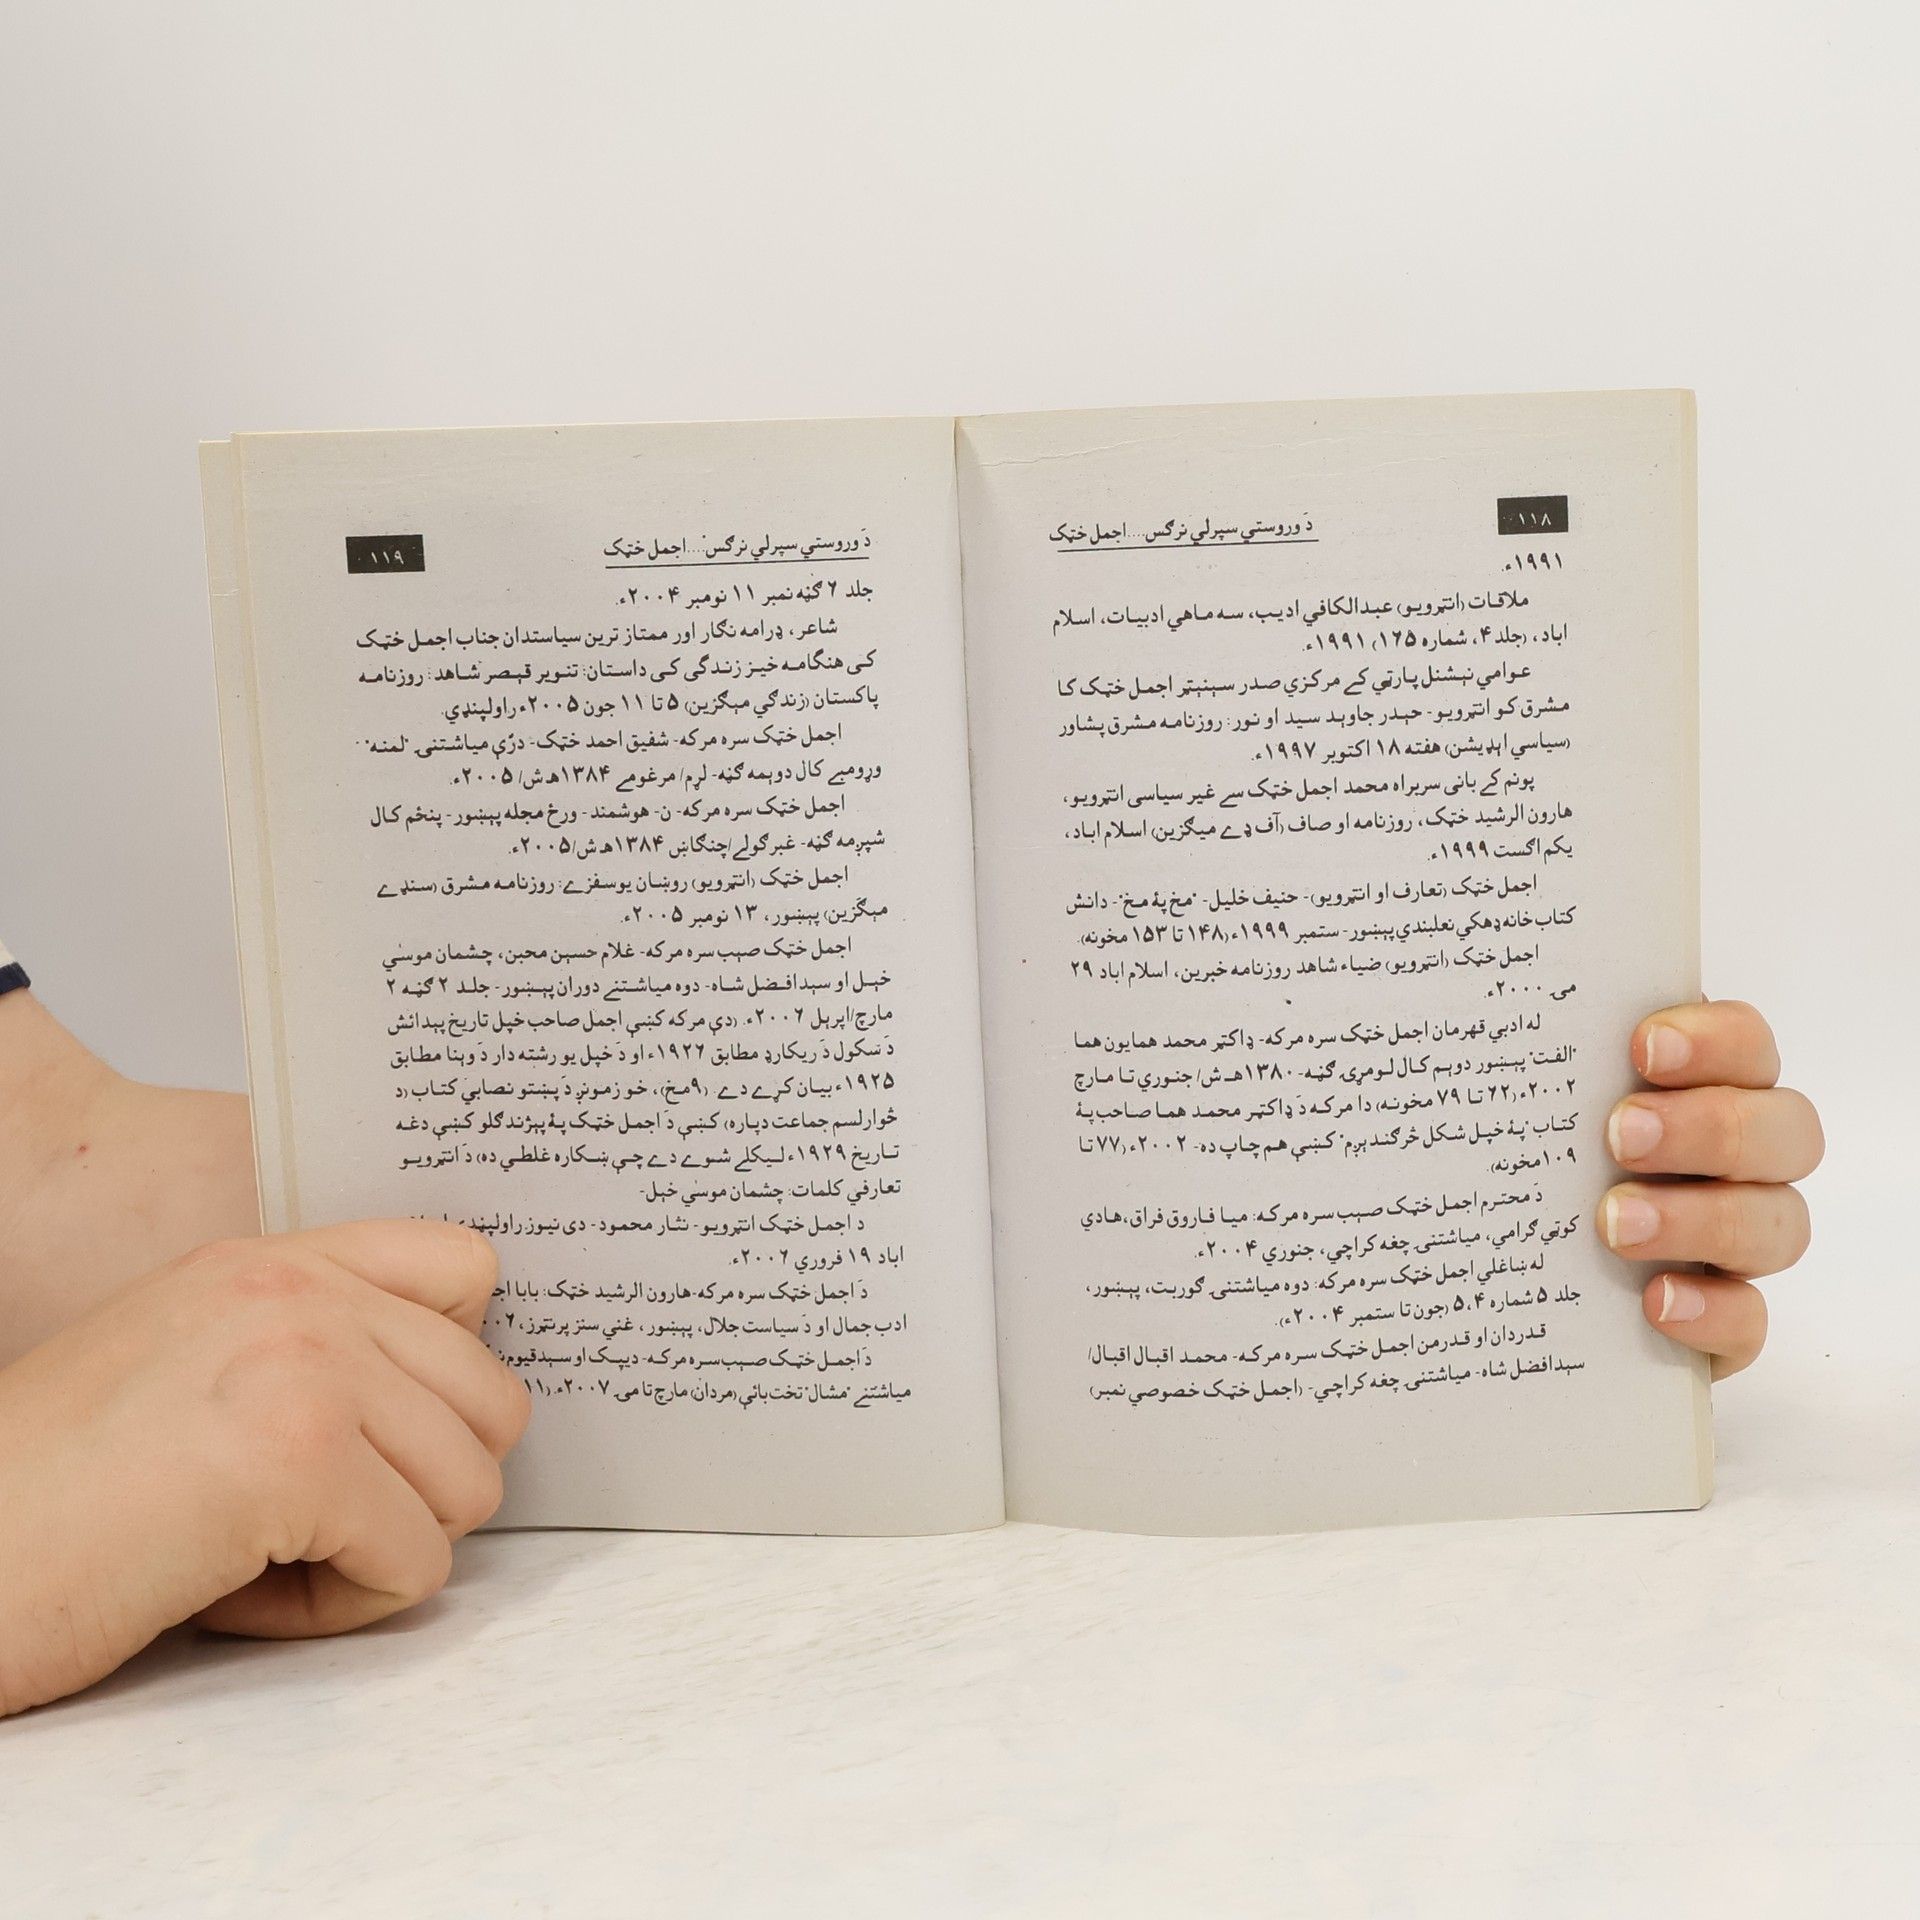 ۱۱۸
دَ وروستي سپرلي نرګس....اجمل خټک
۱۹۹۱ء.
ملاقات (انټرويو) عبدالکافي اديب، سه ماهي ادبيات، اسلام
اباد، (جلد ۴، شماره ۱۶۵) ۱۹۹۱ء.
عوامي نېشنل پارټي کے مرکزي صدر سېنېټر اجمل خټک کا
مشرق کو انټرويو- حېدر جاوېد سيد او نور: روزنامه مشرق پشاور
(سياسي اېډيشن) هفته ۱۸ اکتوبر ۱۹۹۷ء.
پونم کے بانی سربراه محمد اجمل خټک سے غير سياسی انټرويو،
هارون الرشيد خټک، روزنامه او صاف (آف ډے ميګزين) اسلام اباد،
يکم اګست ۱۹۹۹ء.
اجمل خټک (تعارف او انټرويو)- حنيف خليل- "مخ پۀ مخ"- دانش
کتاب خانه ډهکي نعلبندي پېښور- ستمبر ۱۹۹۹ء (۱۴۸ تا ۱۵۳ مخونه).
اجمل خټک (انټرويو) ضياء شاهد روزنامه خبرين، اسلام اباد ۲۹
مۍ ۲۰۰۰ء.
له ادبي قهرمان اجمل خټک سره مرکه- ډاکټر محمد همايون هما
"الفت" پېښور دوېم کال لومړۍ ګڼه- ۱۳۸۰هـ ش/ جنوري تا مارچ
۲۰۰۲ء (۶۲ تا ۷۹ مخونه) دا مرکه دَ ډاکټر محمد هما صاحب پۀ
کتاب "پۀ خپل شکل څرګندېږم" کښې هم چاپ ده- ۲۰۰۲ء (۷۷ تا
۱۰۹ مخونه).
دَ محترم اجمل خټک صېب سره مرکه: ميا فاروق فراق، هادي
کوټي ګرامي، مياشتنۍ چغه کراچي، جنوري ۲۰۰۴ء.
له ښاغلي اجمل خټک سره مرکه: دوه مياشتنۍ ګوربت، پېښور،
جلد ۵ شماره ۵،۴ (جون تا ستمبر ۲۰۰۴ء).
قدردان او قدرمن اجمل خټک سره مرکه- محمد اقبال اقبال/
سېد افضل شاه- مياشتنۍ چغه کراچي- (اجمل خټک خصوصي نمبر)
۱۱۹
دَ وروستي سپرلي نرګس....اجمل خټک
جلد ۶ ګڼه نمبر ۱۱ نومبر ۲۰۰۴ء.
شاعر، ډرامه نګار اور ممتاز ترين سياستدان جناب اجمل خټک
کی هنګامه خيز زندګی کی داستان: تنوير قېصر شاهد: روزنامه
پاکستان (زندګي مېګزين) ۵ تا ۱۱ جون ۲۰۰۵ء راولپنډي.
اجمل خټک سره مرکه- شفيق احمد خټک- درې مياشتنۍ "لمنه"
وړومبے کال دوېمه ګڼه- لړم/ مرغومے ۱۳۸۴هـ ش/ ۲۰۰۵ء.
اجمل خټک سره مرکه- ن- هوشمند- ورځ مجله پېښور- پنځم کال
شپږمه ګڼه- غبرګولے/چنګاښ ۱۳۸۴هـ ش/۲۰۰۵ء.
اجمل خټک (انټرويو) روښان يوسفزے: روزنامه مشرق (سنډے
مېګزين) پېښور، ۱۳ نومبر ۲۰۰۵ء.
اجمل خټک صېب سره مرکه- غلام حسېن محبن، چشمان موسٰي
خېل او سېد افضل شاه- دوه مياشتنے دوران پېښور- جلد ۲ ګڼه ۲
مارچ/اپرېل ۲۰۰۶ء. (دې مرکه کښې اجمل صاحب خپل تاريخ پېدائش
دَ سکول دَ ريکارډ مطابق ۱۹۲۶ء او دَ خپل يو رشته دار دَ وېنا مطابق
۱۹۲۵ء بيان کړے دے (۹مخ)، خو زمونږ دَ پښتو نصابي کتاب (د
څوارلسم جماعت دپاره) کښې دَ اجمل خټک پۀ پېژندګلو کښې دغه
تاريخ ۱۹۲۹ء ليکلے شوے دے چې ښکاره غلطي ده) دَ انټرويو
تعارفي کلمات: چشمان موسٰي خېل-
د اجمل خټک انټرويو- نثار محمود- دی نيوز راولپنډي
اباد ۱۹ فروري ۲۰۰۶ء.
دَ اجمل خټک سره مرکه-هارون الرشيد خټک: بابا
ادب جمال او دَ سياست جلال، پېښور، غني سنز پرنټرز،
دَ اجمل خټک صېب سره مرکه- ديپک او سېد قيوم
مياشتنے "مشال" تخت بائي (مردان) مارچ تا مۍ ۲۰۰۷ء.